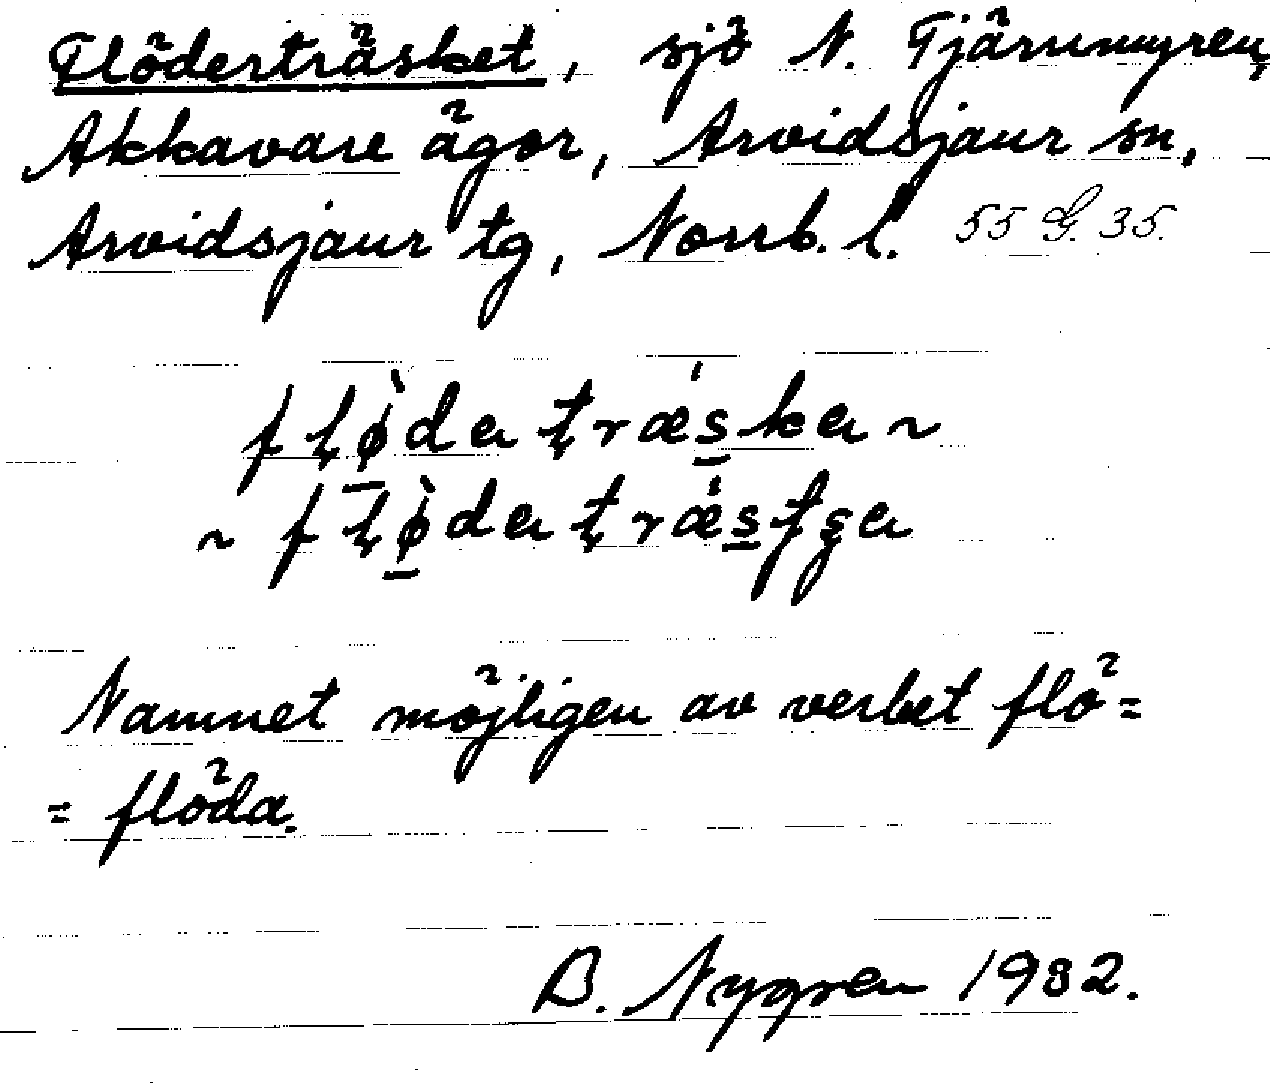 Flöderträsket, sjö N. Tjärnmyren,
Akkavare ägor, Arvidsjaur sn,
Arvidsjaur tg, Norrb. l. 55 G. 35.
Namnet möjligen av verbet flö=
=flöda.
B. Nygren 1932.